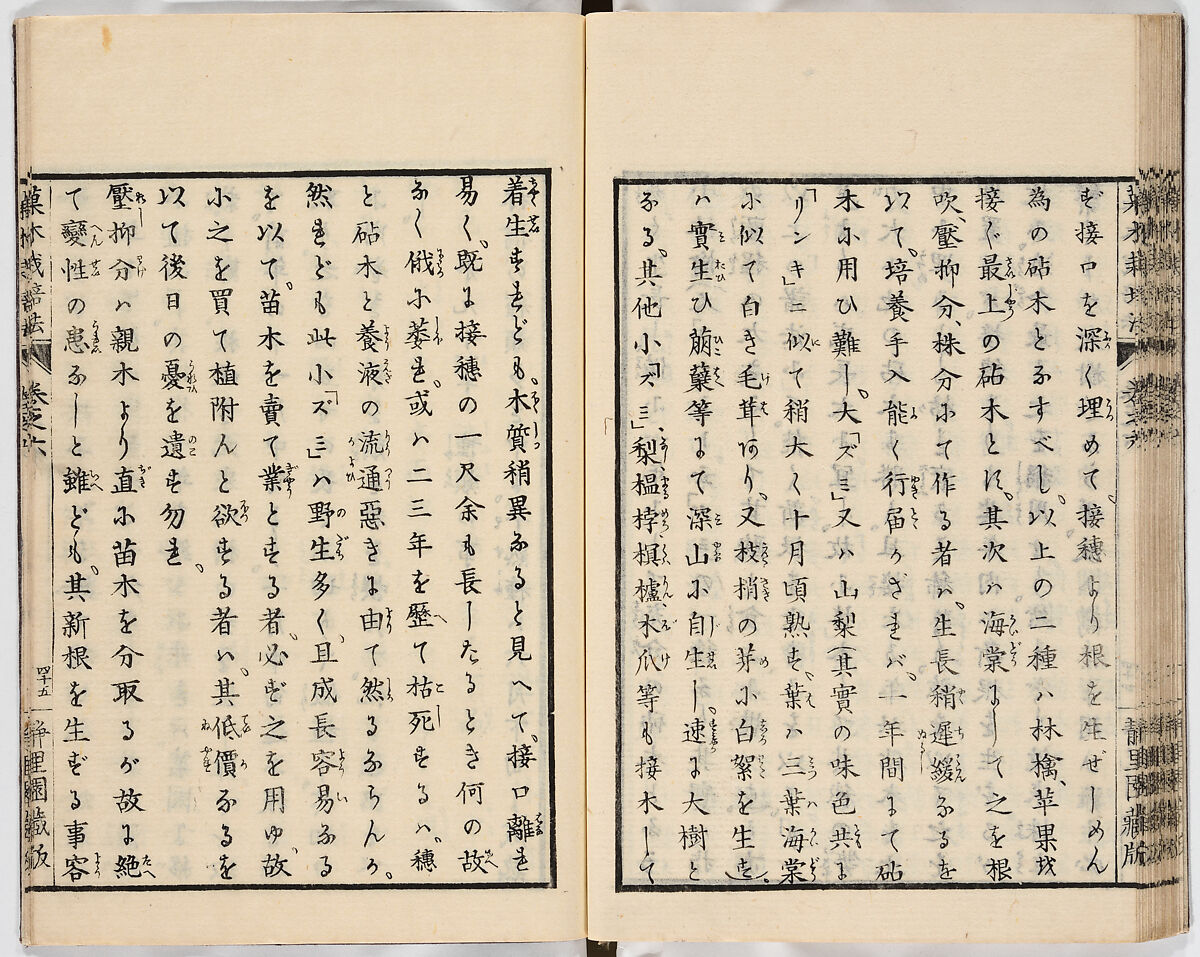 菓木栽培法
卷之六
静里園藏版
ず接口を深く埋めて、接穗より根を生ぜしめん
為の砧木となすべし、以上の二種ハ林檎、苹果
接ぐ最上の砧木とす、其次ハ海棠にして之を根
吹、壓抑分、株分にて作る者ハ、生長稍遲緩なるを
以て、培養手入能く行届かざれバ、一年間にて砧
木に用ひ難し、大「ズミ」又ハ山梨(其實の味色共に
「リンキ」ニ似て稍大く十月頃熟す、葉ハ三葉海棠
に似て白き毛茸あり、又枝梢の芽に白絮を生ず)
ハ實生ひ萠蘖等にて深山に自生し、速に大樹と
なる、其他小「ズミ」、梨、榲桲、榠樝、木瓜等も接木して
着生すれども、木質稍異なると見へて、接口離れ
易く、既に接穗の一尺余も長したるとき何の故
なく俄に萎れ、或ハ二三年を歷て枯死するハ、穗
と砧木と養液の流通惡きに由て然るならんか、
然れども此小「ズミ」ハ野生多く、且成長容易なる
を以て、苗木を賣て業とする者、必ず之を用ゆ、故
に之を買て植附んと欲する者ハ、其低價なるを
以て後日の憂を遺す勿れ、
壓抑分ハ親木より直に苗木を分取るが故に絶
て變性の患なしと雖ども、其新根を生ずる事容
菓木栽培法
卷之六
四十五
静里園藏版